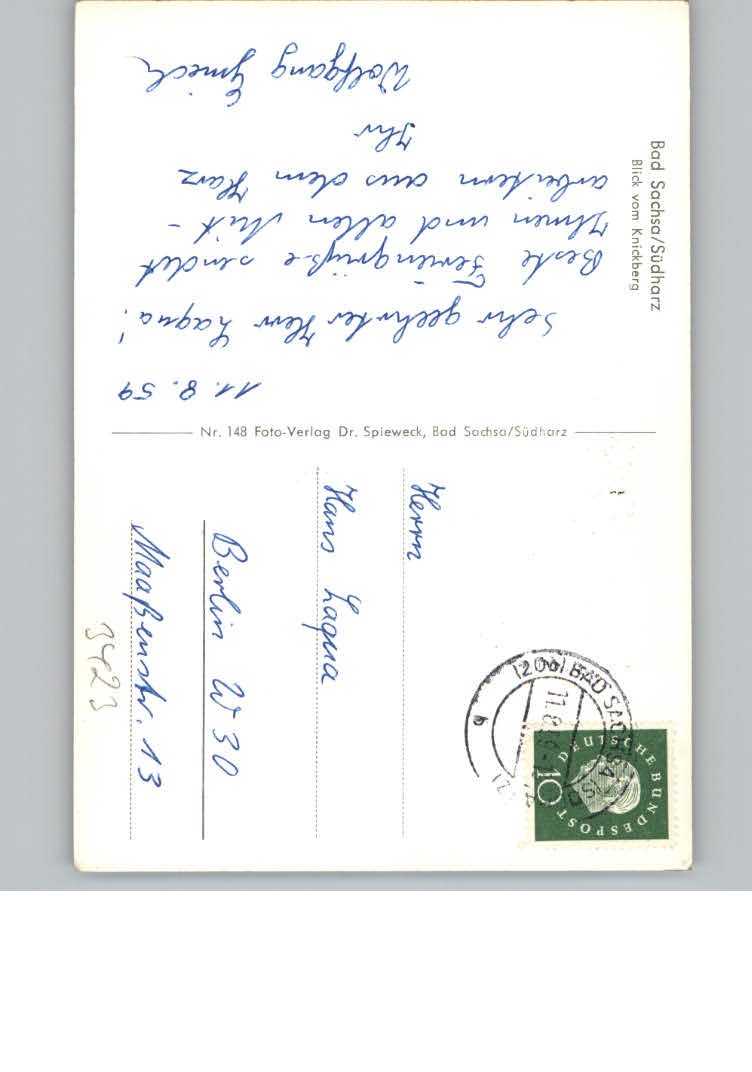 Bad Sachsa/Südharz
Blick vom Knickberg
11.8.59
Sehr geehrter Herr Laqua!
Beste Feriengrüße sendet
Ihnen und allen Mit-
arbeitern aus dem Harz
Ihr
Wolfgang
Nr. 148 Foto-Verlag Dr. Spieweck, Bad Sachsa/Südharz
Herrn
Hans Laqua
Berlin W 30
Maaßenstr. 13
3423
(20b) BAD SACHSA
11.8.
a
DEUTSCHE BUNDESPOST
10